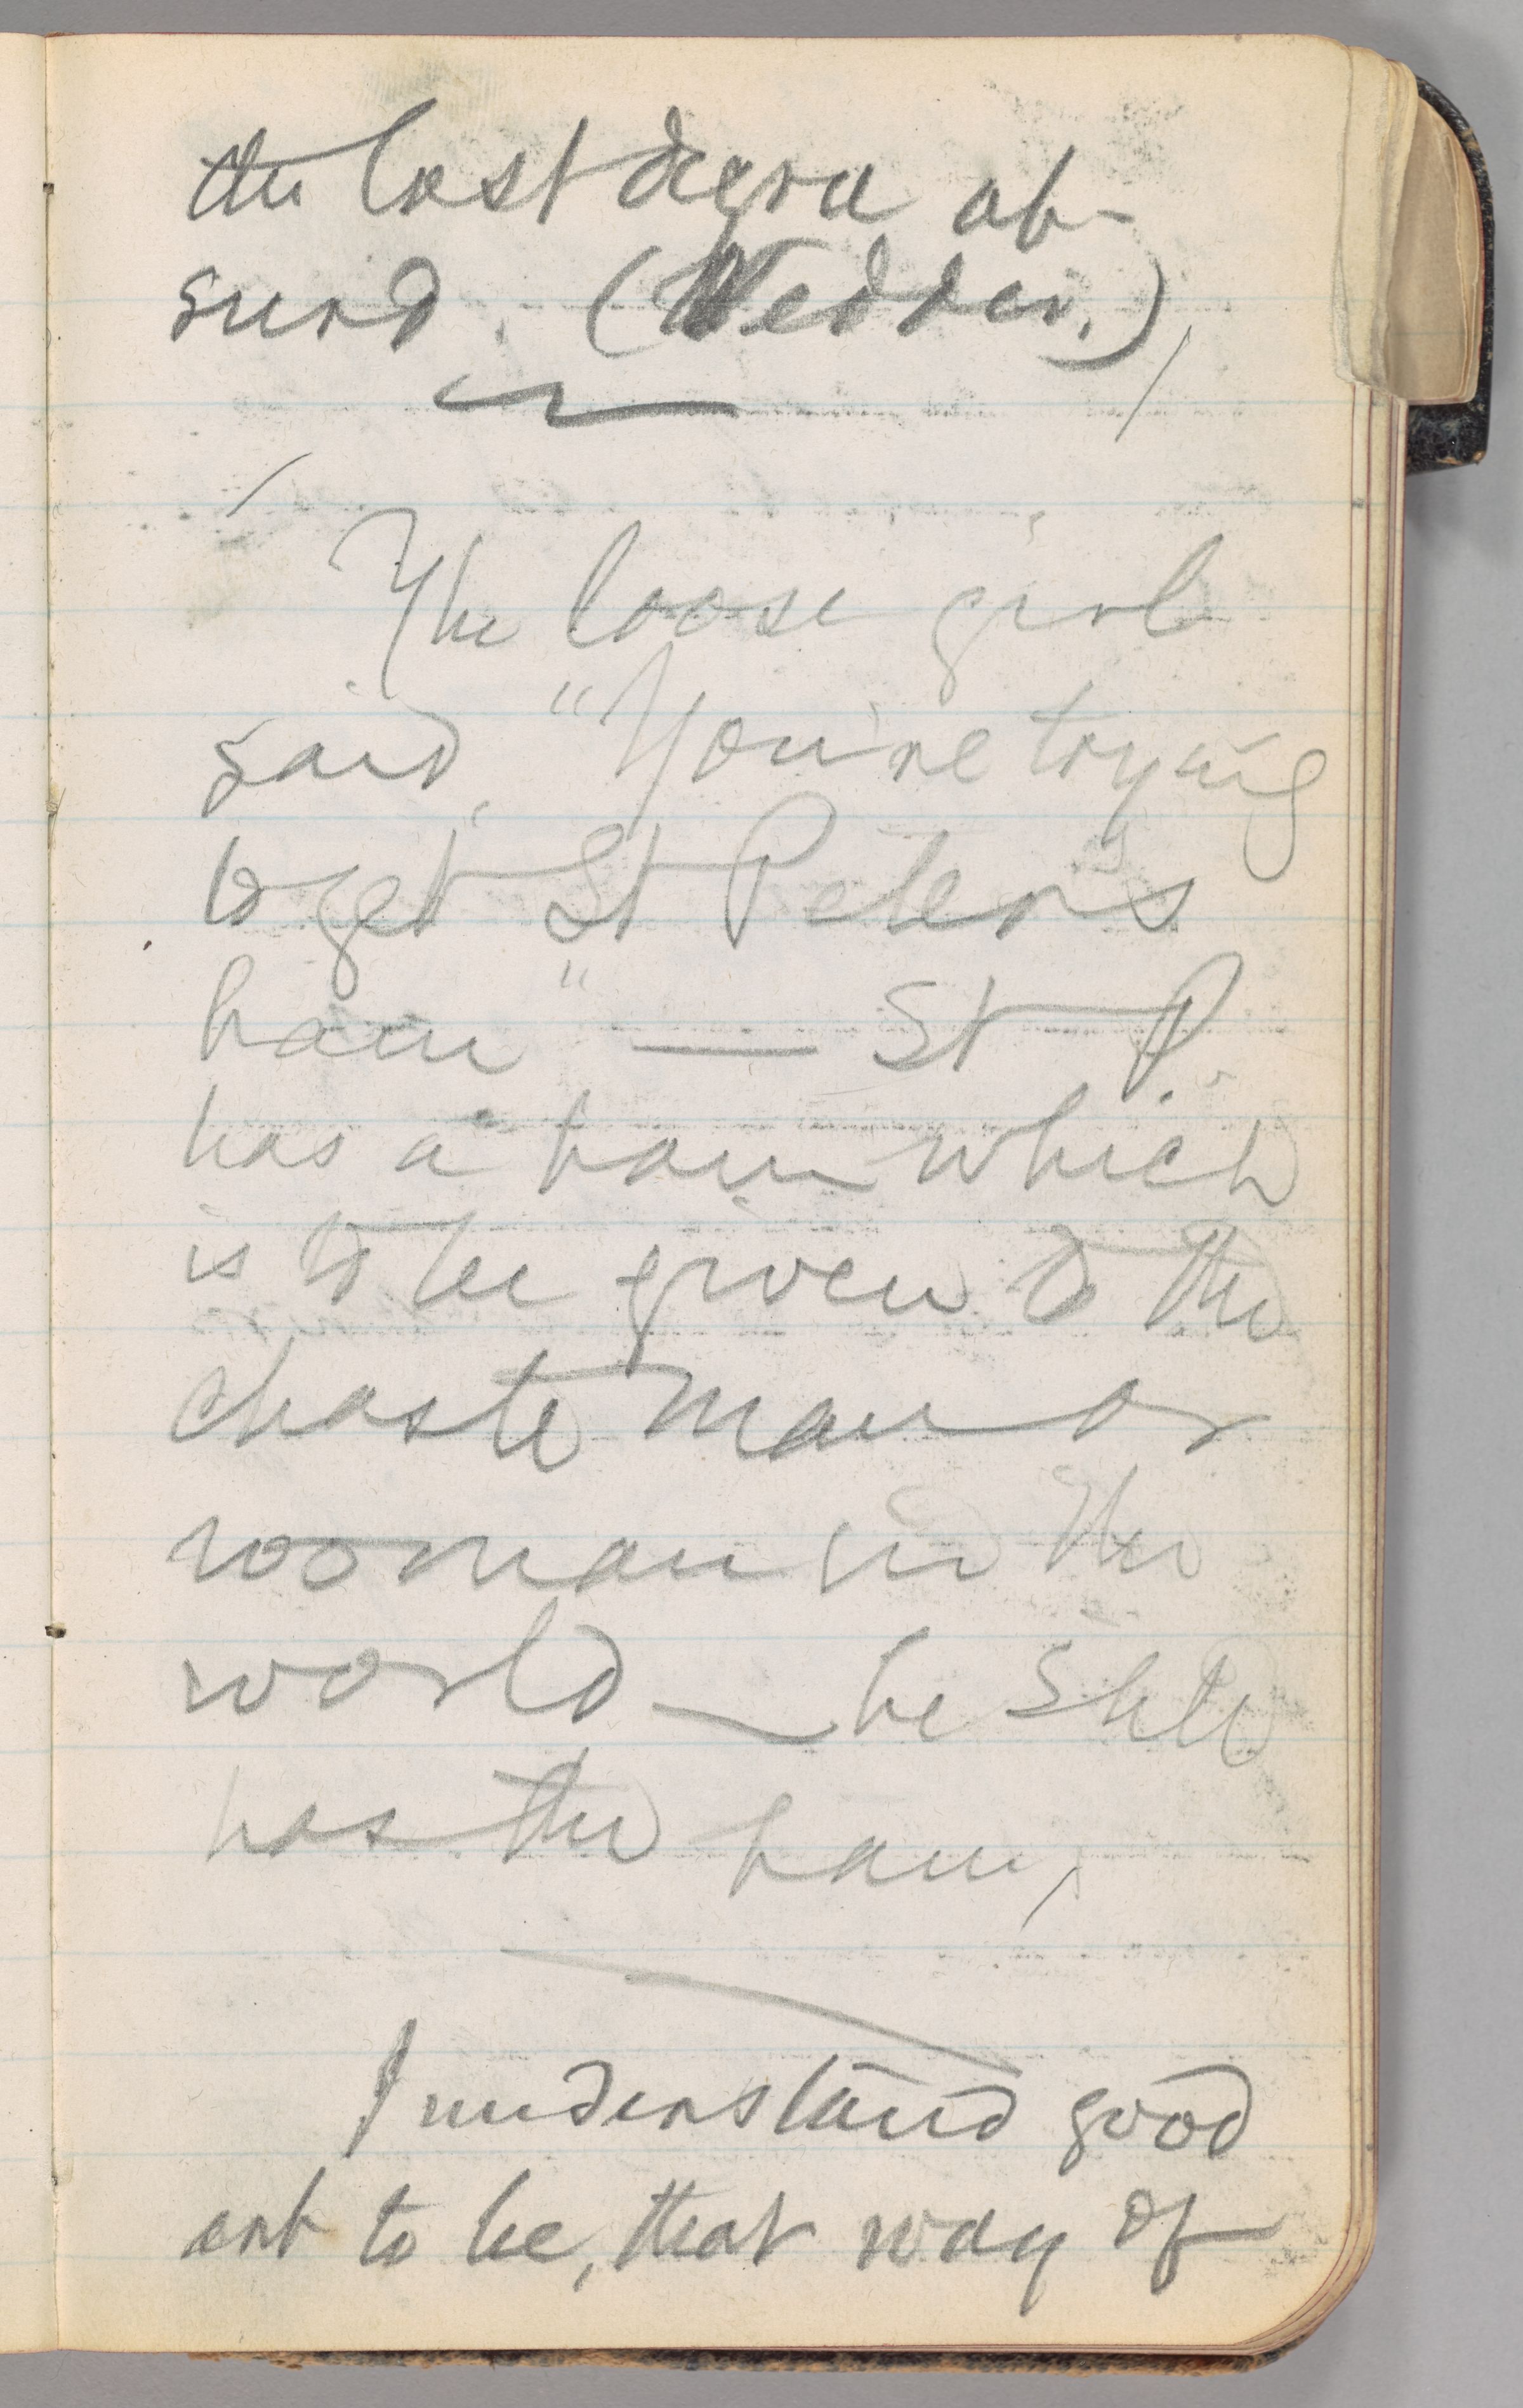 the last degree ab-
surd. (Vedder.)
The loose girl
said, "You're trying
to get St Peter's
ham" — St P.
has a ham which
is to be given to the
chaste man or
woman in the
world — he still
has the ham,
I understand good
art to be, that way of